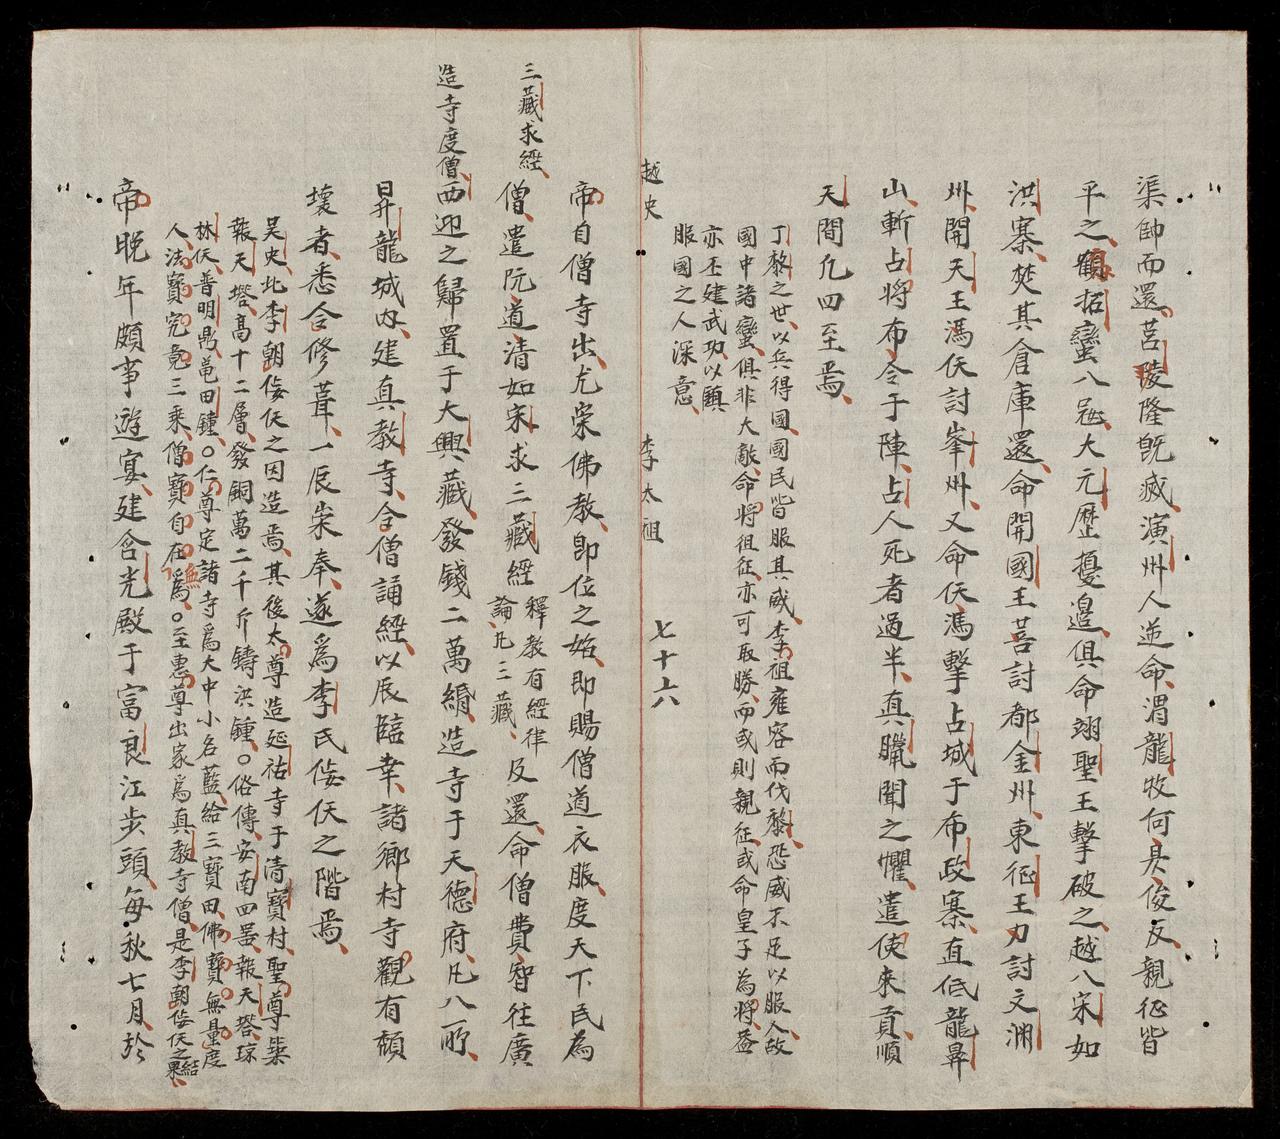 渠帥而還莒陵隆既滅演州人逆命渭龍牧何具俊反親征皆
平之鶴拓蠻八冦大元歷擾邉俱命翊聖王擊破之越八宋如
洪寨焚其倉庫還命開國王菩討都金州東征王力討文渊
州開天王馮仸討峯州又命仸馮擊占城于布政寨直低龍鼻
山斬占將布令于陣占人死者過半真臘聞之懼遣使來貢順
天間凡四至焉
丁黎之世以兵得國國民皆服其威李祖雍容而代黎恐威不足以服人故
國中諸蠻俱非大敵命將徂征亦可取勝而或則親征或命皇子為將益
亦丕建武功以鎮
服國之人深意
越史 李太祖 七十六
帝自僧寺出尤崇佛教即位之始即賜僧道衣服度天下民為
三藏求經
僧遣阮道清如宋求三藏經
釋教有經律
論凡三藏
及還命僧費智往廣
造寺度僧
西迎之歸置于大興藏發錢二萬緡造寺于天德府凡八所
昇龍城内建真教寺令僧誦經以辰臨幸諸鄉村寺觀有頹
壞者悉令修葺一辰崇奉遂爲李氏侫仸之階焉
吴史北李朝侫仸之因造焉其後太尊造延祐寺于清寳村聖尊築
報天塔高十二層發銅萬二千斤鑄洪鍾○俗傳安南四噐報天塔琼
林仸普明鼎黽田鍾○仁尊定諸寺爲大中小名藍給三寳田佛寳無量度
人法寳究竟三乘僧寳自在無爲○至惠尊出家爲真教寺僧是李朝侫仸之結果
帝晚年頗事遊宴建含光殿于富良江步頭每秋七月於